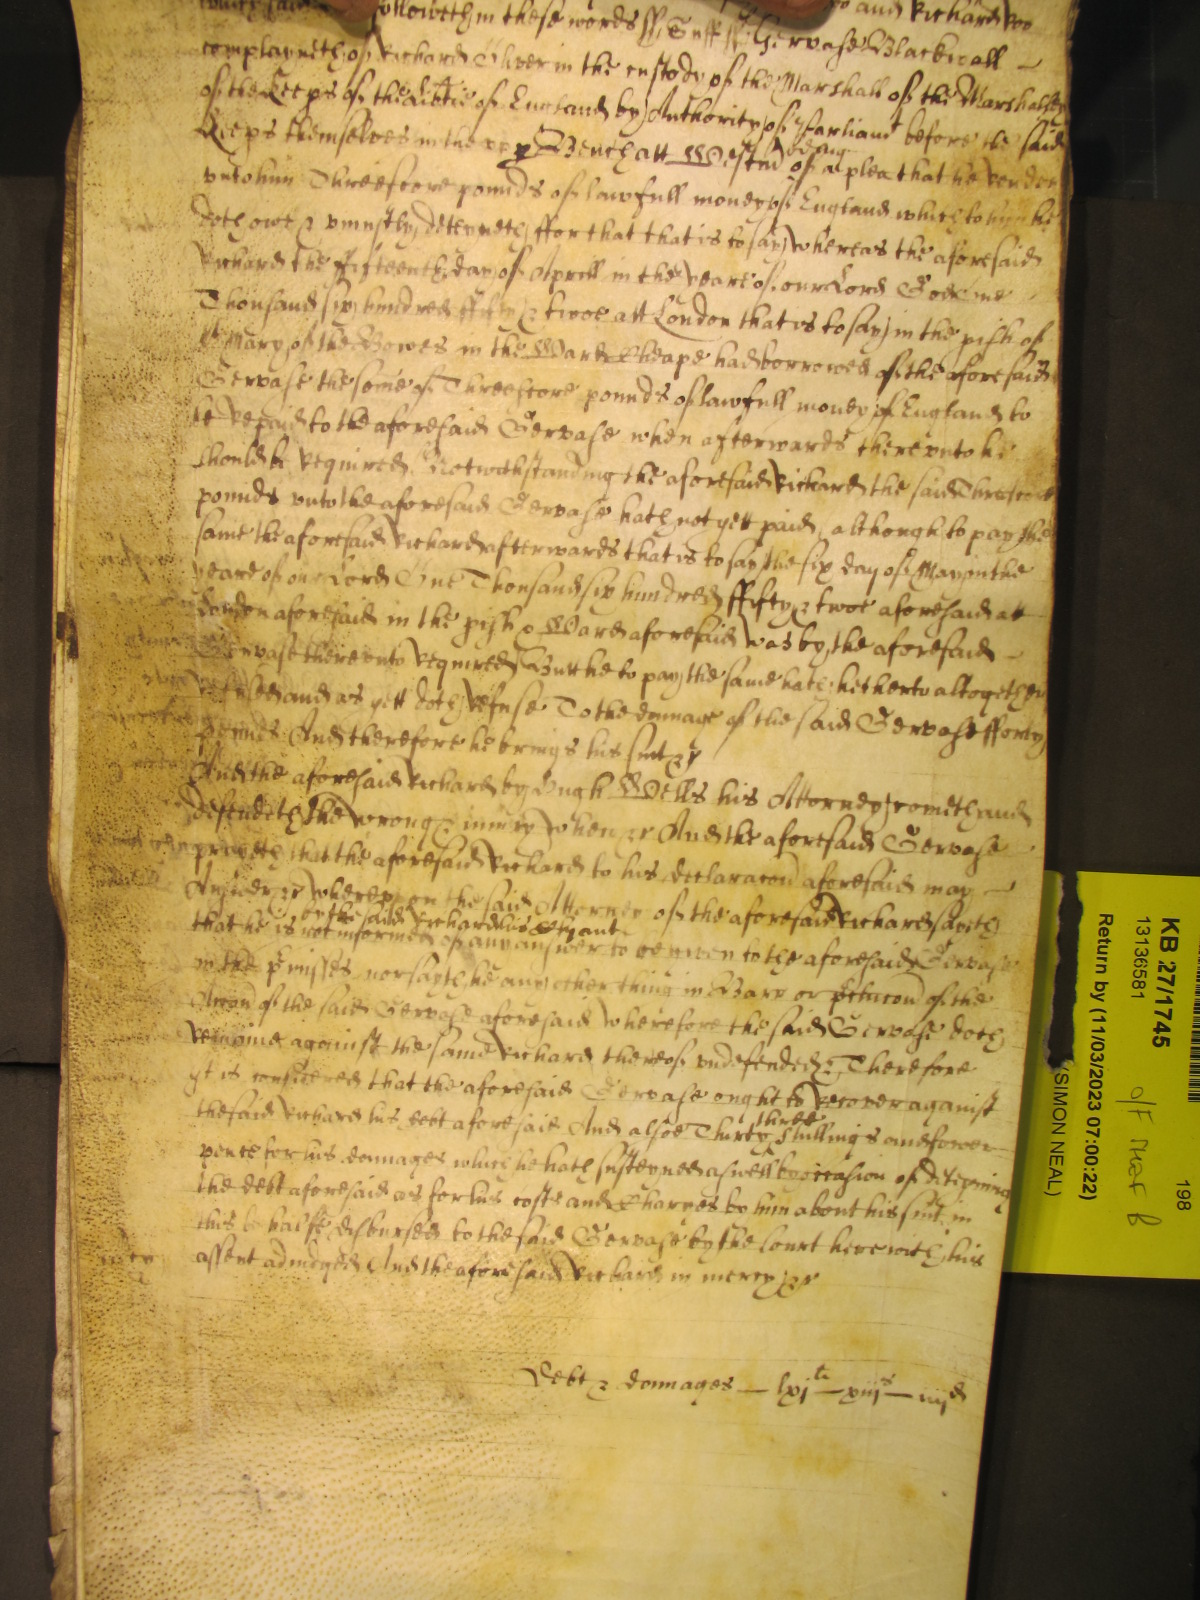 followeth in these words ss Suff ss Gervase Blackwall
complayneth of Richard Oliver in the custody of the Marshall of the Marshalsey
of the Keeps of the libtie of England by Authority of Parliamt before the said
Keeps themselves in the vpp Bench att Westm of a plea that he render
vnto him Threescore pounds of lawfull money of England which to him he
doth owe & vniustly deteyneth ffor that that is to say whereas the aforesaid
Richard the ffifteenth day of Aprill in the yeare of our Lord God one
Thousand six hundred ffifty & twoe att London that is to say in the pish of
Mary of the Bowes in the Ward Cheape had borrowed of the aforesaid
Gervase the some of Threescore pounds of lawfull money of England to
be repaid to the aforesaid Gervase when afterwards therevnto he
should be required Notwithstanding the aforesaid Richard the said Threscore
pounds vnto the aforesaid Gervase hath not yett paid although to pay the
same the aforesaid Richard afterwards that is to say the six day of May in the
yeare of our Lord One Thousand six hundred ffifty & twoe aforesaid att
London aforesaid in the pish & Ward aforesaid was by the aforesaid
Gervase therevnto required But he to pay the same hath hetherto altogether
refused and as yett doth refuse To the dmmage of the said Gervase fforty
pounds And therefore he brings his suit &c
And the aforesaid Richard by Hugh Wells his Attorney cometh and
defendeth the wrong & iniury when &c And the aforesaid Gervase
prayeth that the aforesaid Richard to his declaracon aforesaid may
Answer &c wherevpon the said Attorney of the aforesaid Richard saith
by the said Richard his
that he is not informed of any answer to be given to the aforesaid Gervase
in the pmisses nor sayth he any other thing in Barr or of the
Accon of the said Gervase aforesaid wherefore the said Gervase doth
remaine against the same Richard thereof vndefended &c Therefore
yt is considered that the aforesaid Gervase ought to recover against
three
the said Richard his debt aforesaid And alsoe Thirty shillings and fower
pence for his dammages which he hath susteyned aswell by occasion of deteyning
the debt aforesaid as for his costs and Charges by him about his suit in
this behalfe disbursed to the said Gervase by the Court here with his
assent adiudged And the aforesaid Richard in mercy &c
mcy
Debt & dammages — lxili — xiijs — iiijd
KB 27/1745
13136581
Return by (11/03/2023 07:00:22)
(SIMON NEAL)
198